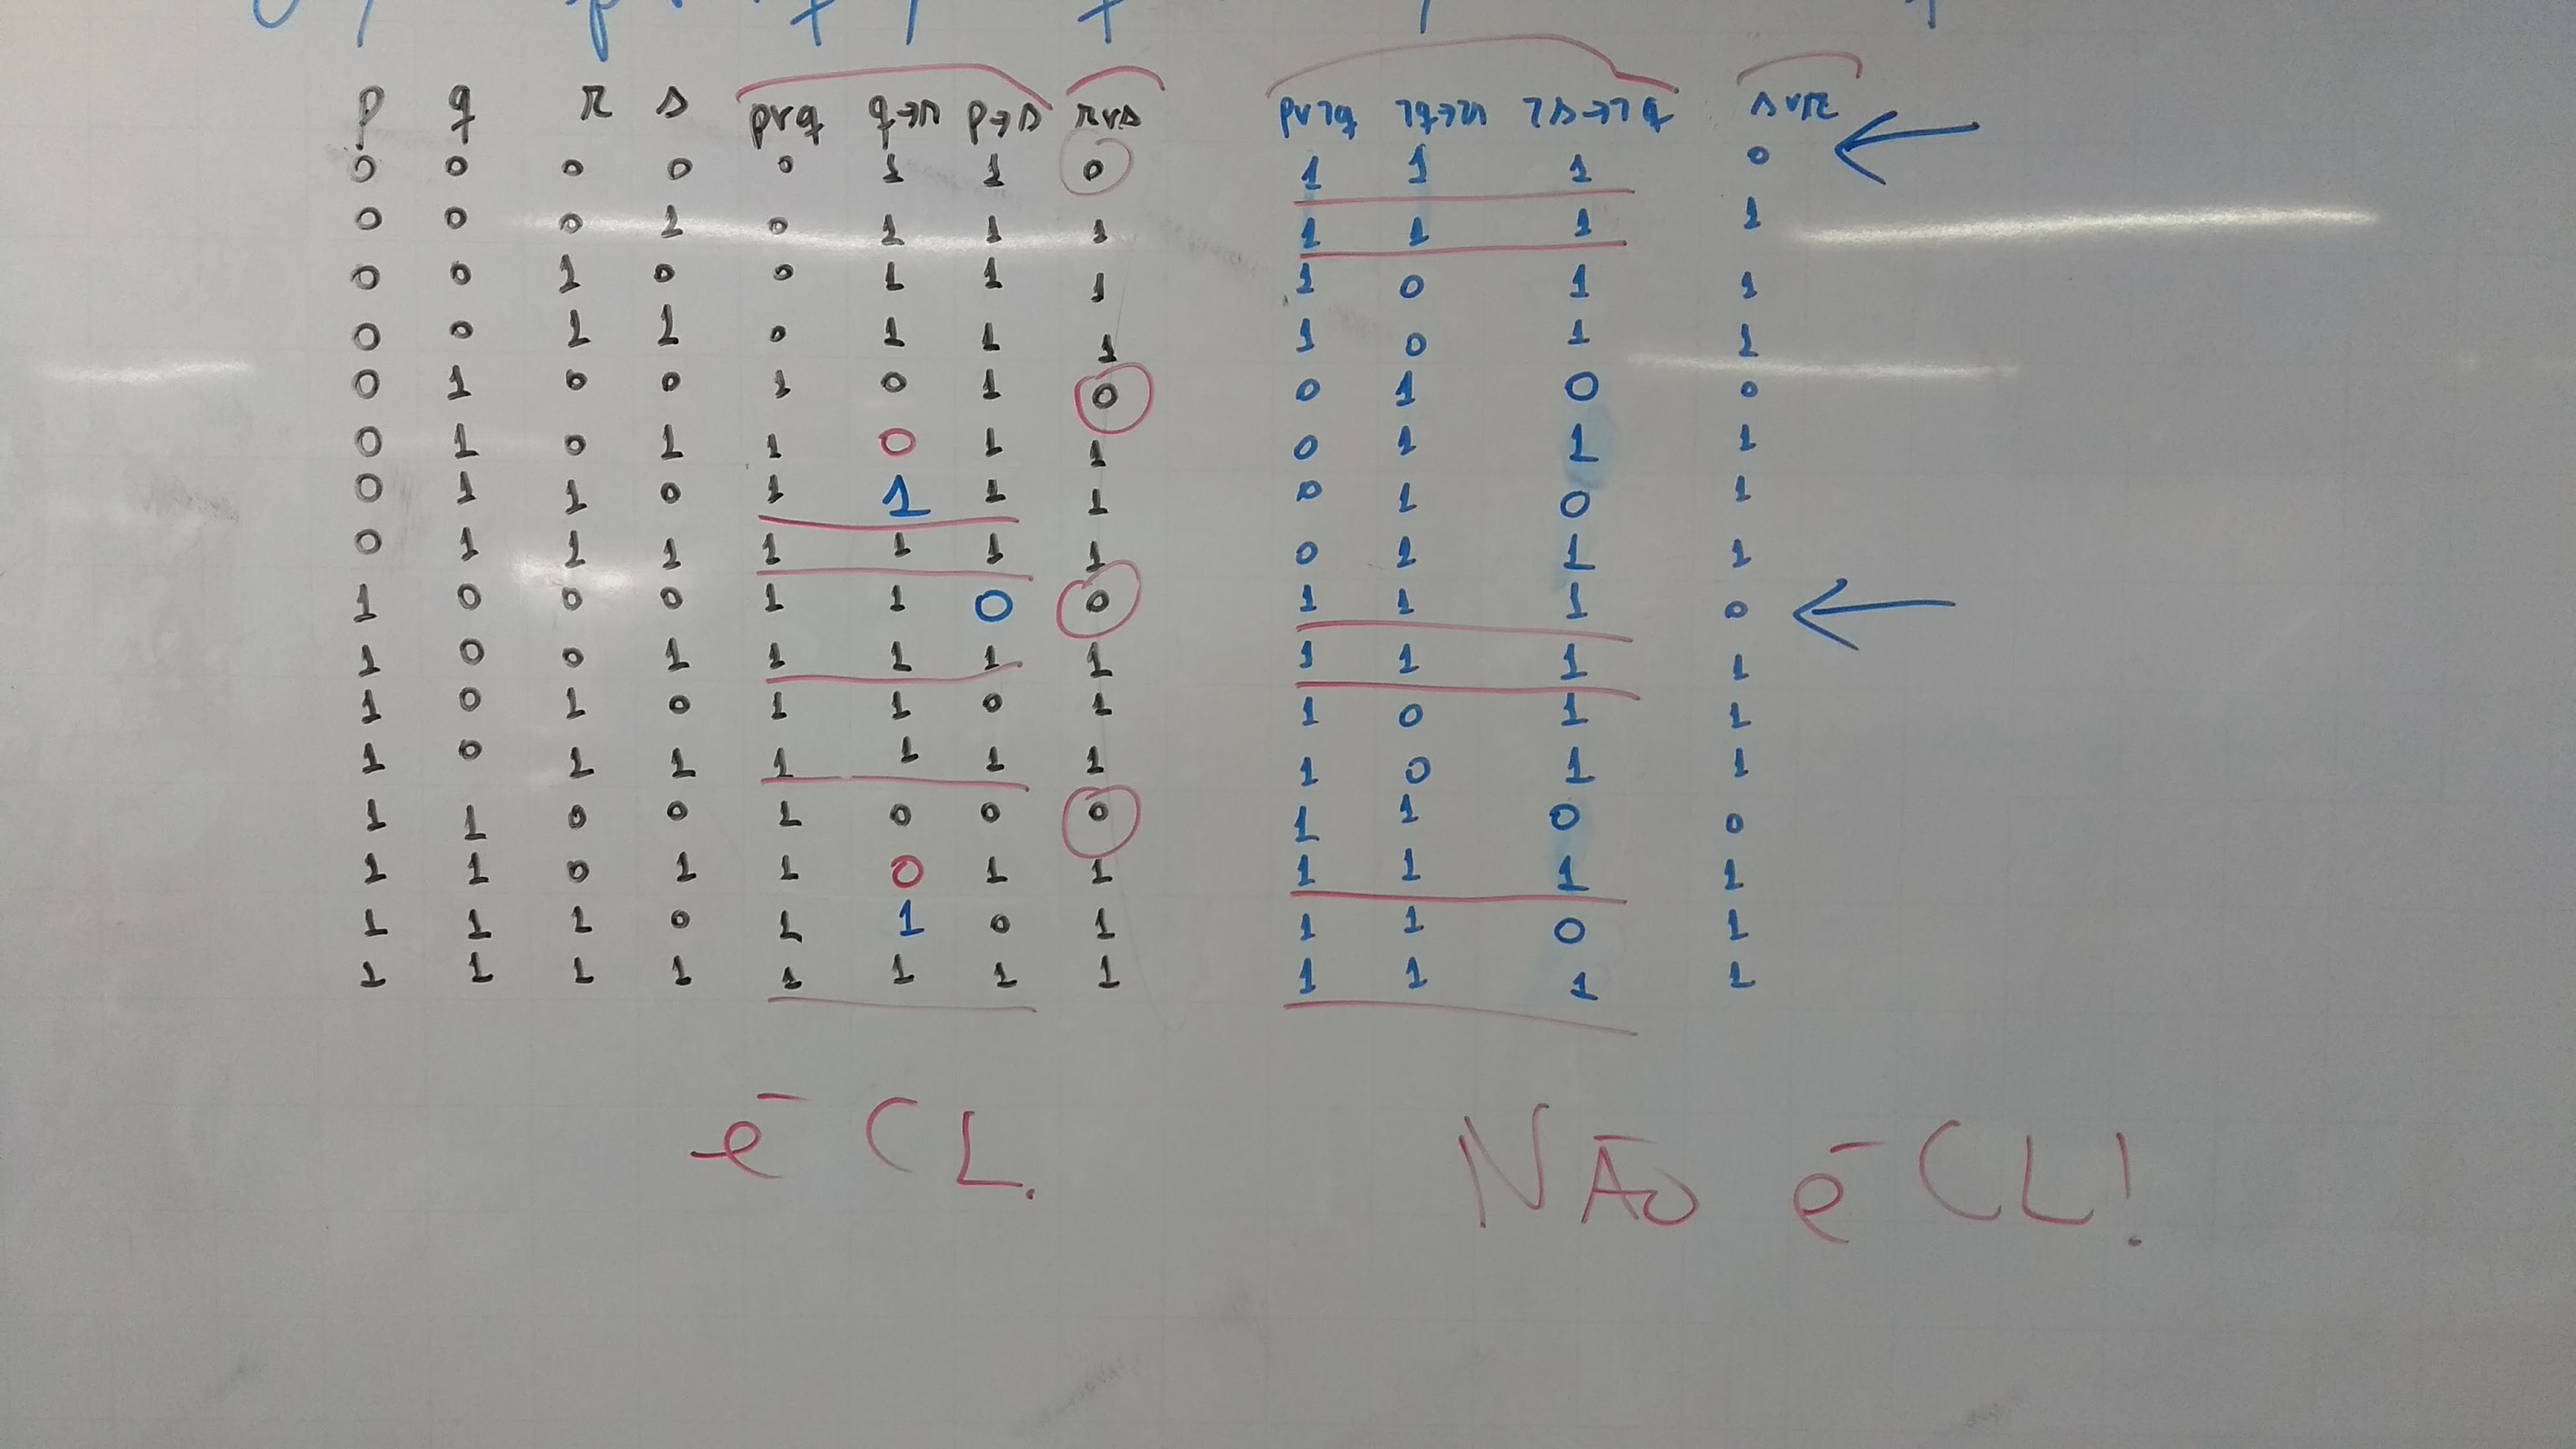 p q r s p∨q q→r p→s r∨s p∨¬q ¬q→¬r ¬s→¬q s∨r
0 0 0 0 0 1 1 0 1 1 1 0
0 0 0 1 0 1 1 1 1 1 1 1
0 0 1 0 0 1 1 1 1 0 1 1
0 0 1 1 0 1 1 1 1 0 1 1
0 1 0 0 1 0 1 0 0 1 0 0
0 1 0 1 1 0 1 1 0 1 1 1
0 1 1 0 1 1 1 1 0 1 0 1
0 1 1 1 1 1 1 1 0 1 1 1
1 0 0 0 1 1 0 0 1 1 1 0
1 0 0 1 1 1 1 1 1 1 1 1
1 0 1 0 1 1 0 1 1 0 1 1
1 0 1 1 1 1 1 1 1 0 1 1
1 1 0 0 1 0 0 0 1 1 0 0
1 1 0 1 1 0 1 1 1 1 1 1
1 1 1 0 1 1 0 1 1 1 0 1
1 1 1 1 1 1 1 1 1 1 1 1
é CL. NÃO é CL!